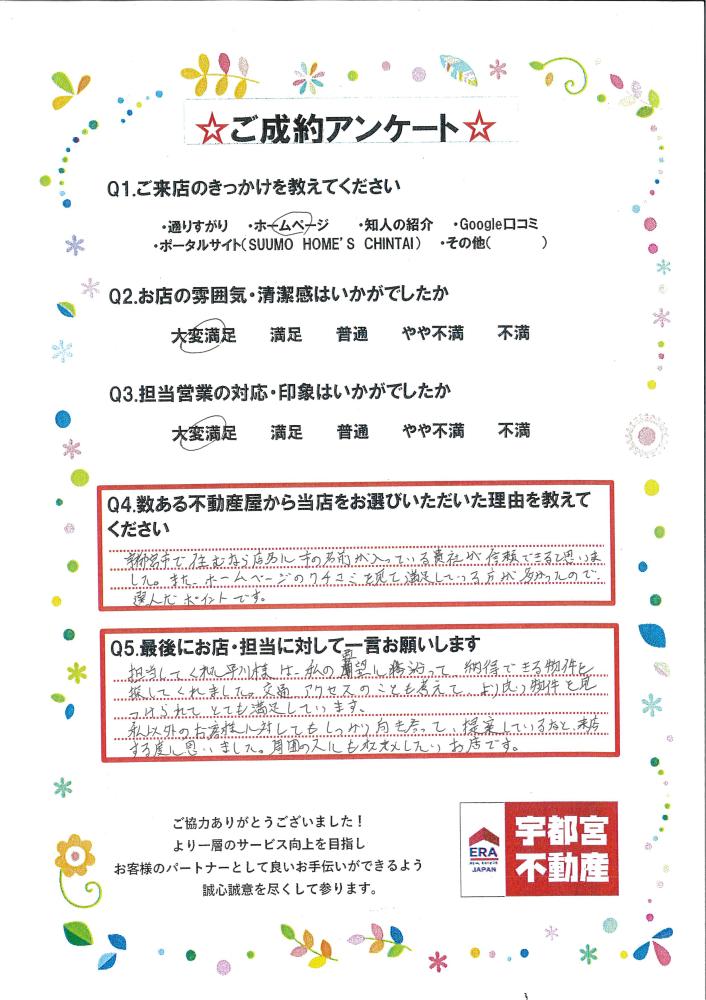 ☆ご成約アンケート☆
Q1.ご来店のきっかけを教えてください
・通りすがり ・ホームページ ・知人の紹介 ・Google口コミ
・ポータルサイト(SUUMO HOME'S CHINTAI) ・その他( )
Q2.お店の雰囲気・清潔感はいかがでしたか
大変満足 満足 普通 やや不満 不満
Q3.担当営業の対応・印象はいかがでしたか
大変満足 満足 普通 やや不満 不満
Q4.数ある不動産屋から当店をお選びいただいた理由を教えて
ください
宇都宮市で住むなら店名に市の名前が入っている貴社が信頼できると思いま
した。また、ホームページのクチコミを見て満足している方が多かったので、
選んだポイントです。
Q5.最後にお店・担当に対して一言お願いします
担当してくれた平川様は、私の要望に沿って、納得できる物件を
探してくれました。交通アクセスのことも考えて、より良い物件を見
つけられて、とても満足しています。
私以外のお客様に対してもしっかり向き合って、提案しているなと、来店
する度に思いました。周囲の人にもオススメしたいお店です。
ご協力ありがとうございました！
より一層のサービス向上を目指し
お客様のパートナーとして良いお手伝いができるよう
誠心誠意を尽くして参ります。
ERA
REAL ESTATE
JAPAN
宇都宮
不動産